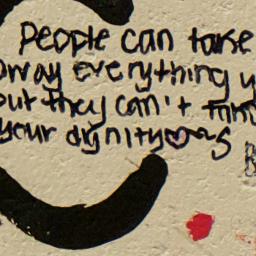 People can take
away everything y
but they can't
your dignity